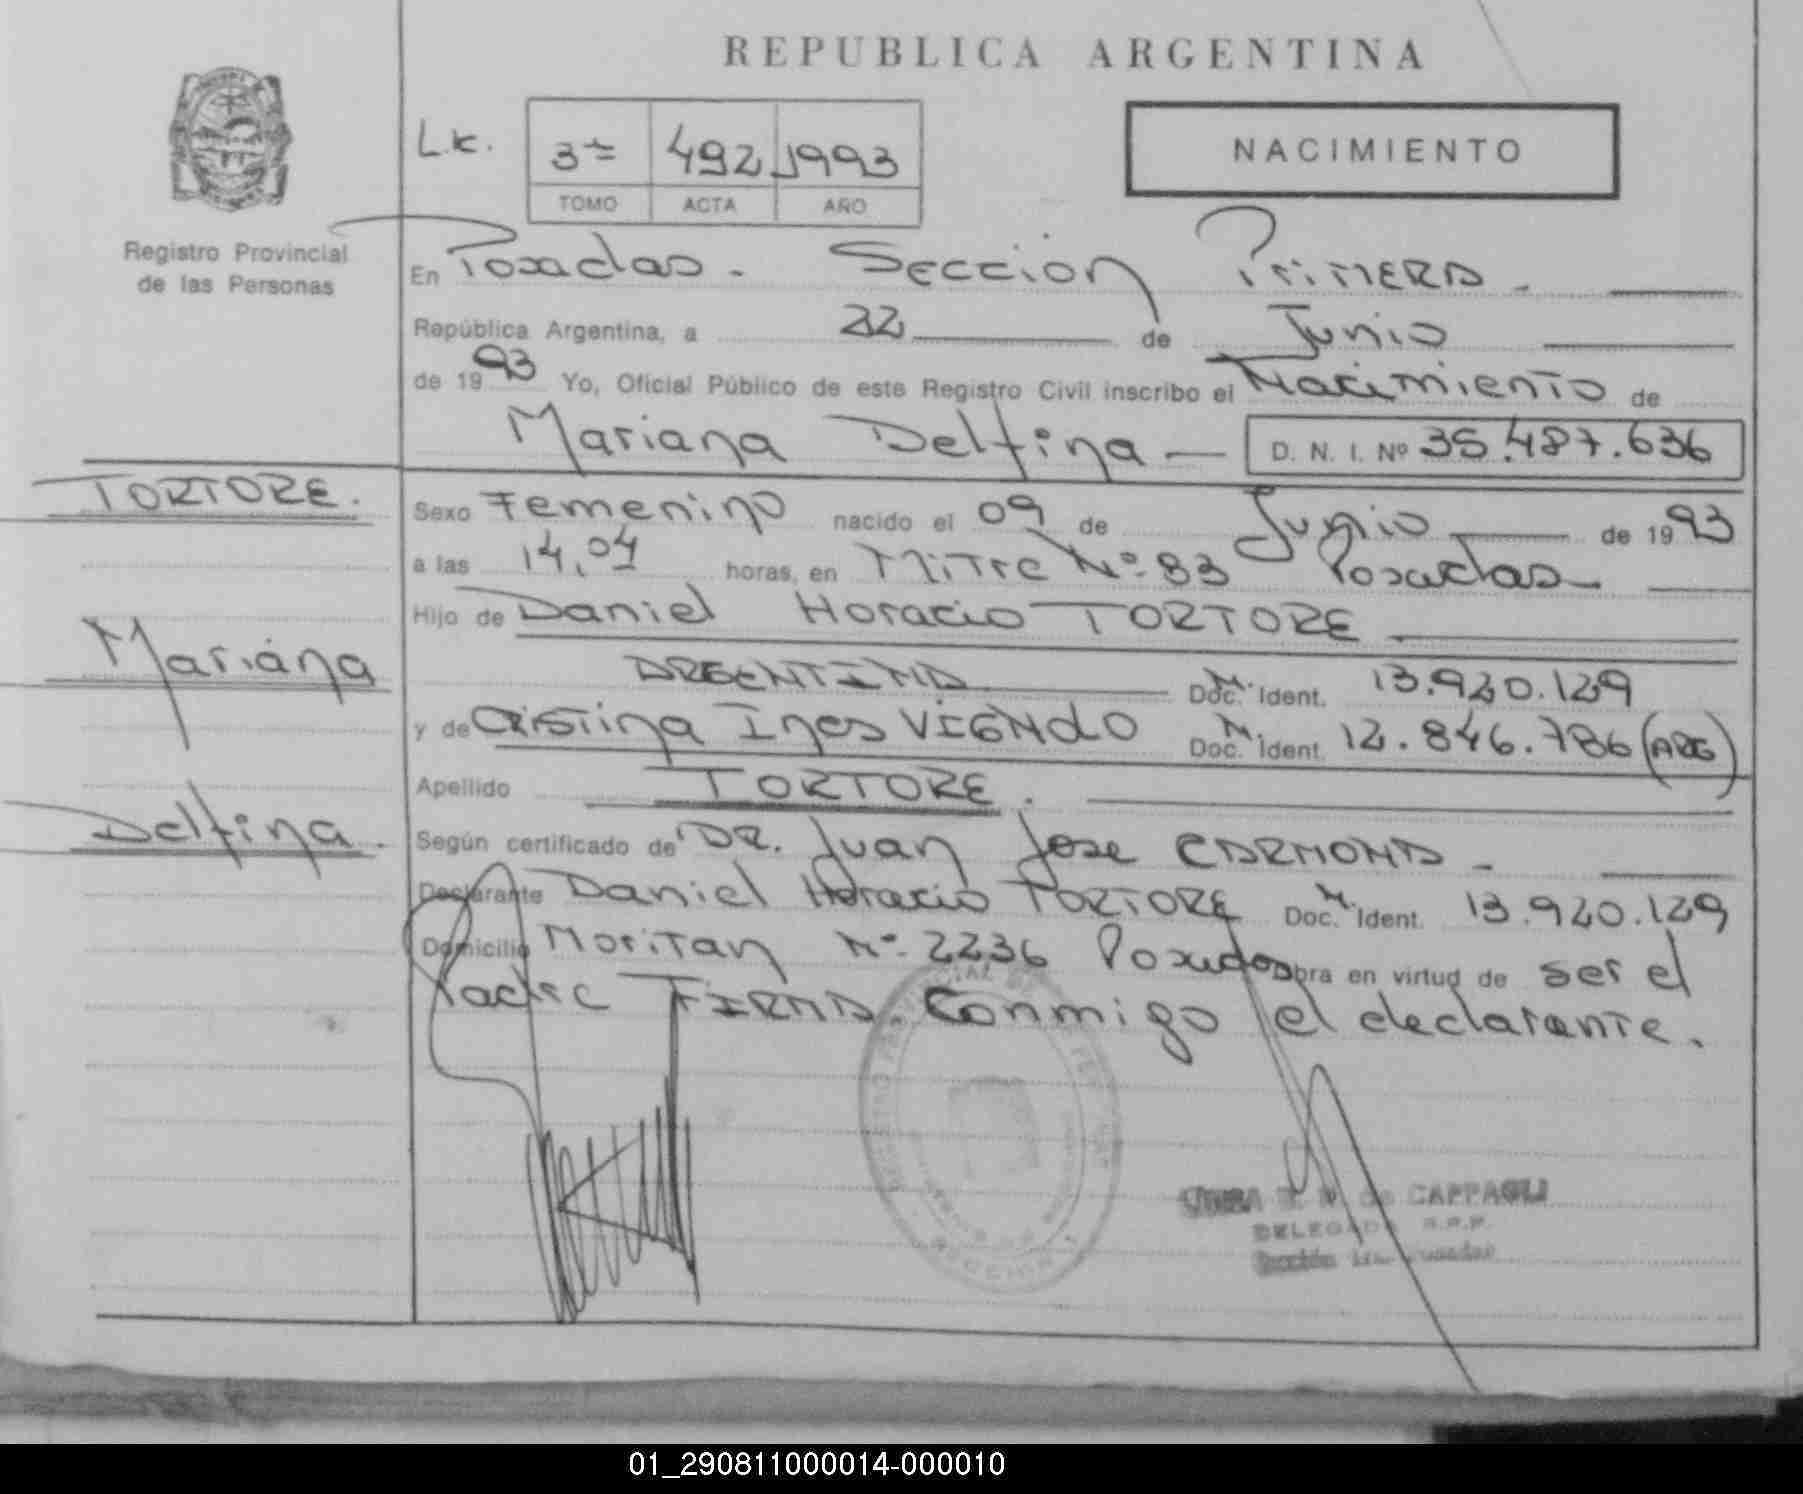 REPUBLICA ARGENTINA
L.K. 3º 492 1993
TOMO ACTA AÑO
NACIMIENTO
Registro Provincial
de las Personas
En Posadas. Sección Primera.
República Argentina, a 22 de Junio
de 1993 Yo, Oficial Público de este Registro Civil inscribo el Nacimiento de
Mariana Delfina D. N. I. Nº 35.487.636
TORTORE.
Mariana
Delfina.
Sexo Femenino nacido el 09 de Junio de 1993
a las 14,04 horas, en Mitre Nº 83 Posadas
Hijo de Daniel Horacio TORTORE
ARGENTINA Doc. Ident. 13.920.129
y de Cristina Ines VIGNOLO Doc. Ident. 12.846.786 (ARG)
Apellido TORTORE.
Según certificado de DR. Juan Jose CARMONA
Declarante Daniel Horacio TORTORE Doc. Ident. 13.920.129
Domicilio Moritan Nº 2236 Posadas Obra en virtud de ser el
Padre FIRMA Conmigo el declarante.
de CAPPAGLI
DELEGADA R.P.P.
Sección 1ra. Posadas
01_290811000014-000010